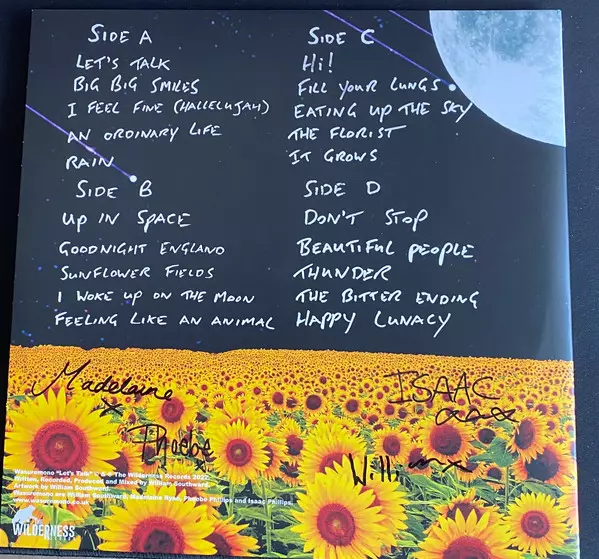 SIDE A
LET'S TALK
BIG BIG SMILES
I FEEL FINE (HALLELUJAH)
AN ORDINARY LIFE
RAIN
SIDE B
UP IN SPACE
GOODNIGHT ENGLAND
SUNFLOWER FIELDS
I WOKE UP ON THE MOON
FEELING LIKE AN ANIMAL
SIDE C
Hi!
FILL YOUR LUNGS
EATING UP THE SKY
THE FLORIST
IT GROWS
SIDE D
DON'T STOP
BEAUTIFUL PEOPLE
THUNDER
THE BITTER ENDING
HAPPY LUNACY
Madelaine x
ISAAC
Phoebe x
Will
Wasuremono "Let's Talk" © & ℗ The Wilderness Records 2022.
Written, Recorded, Produced and Mixed by William Southward.
Artwork by William Southward.
Wasuremono are William Southward, Madelaine Ryan, Phoebe Phillips and Isaac Phillips.
www.wasuremono.co.uk
The
WILDERNESS